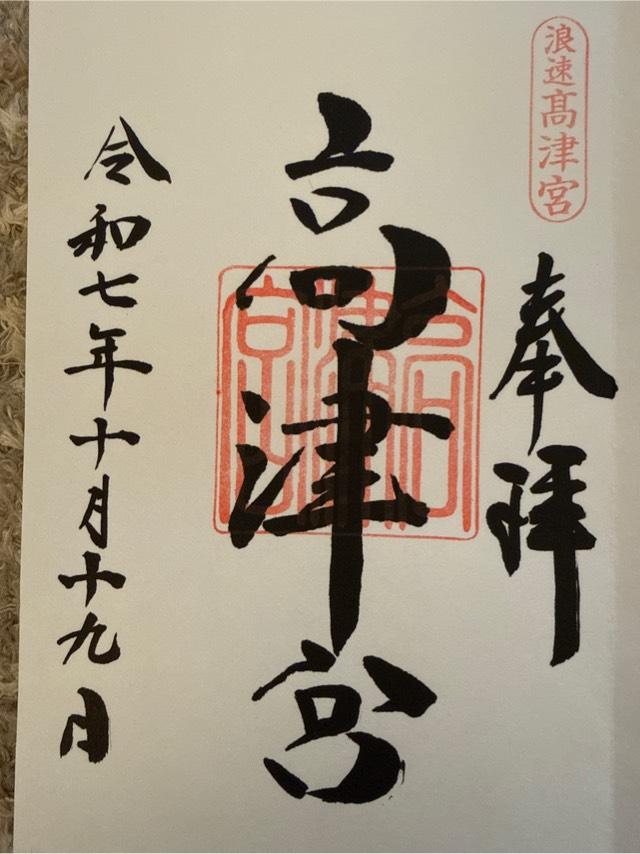 浪速髙津宮
奉拝
高津宮
令和七年十月十九日